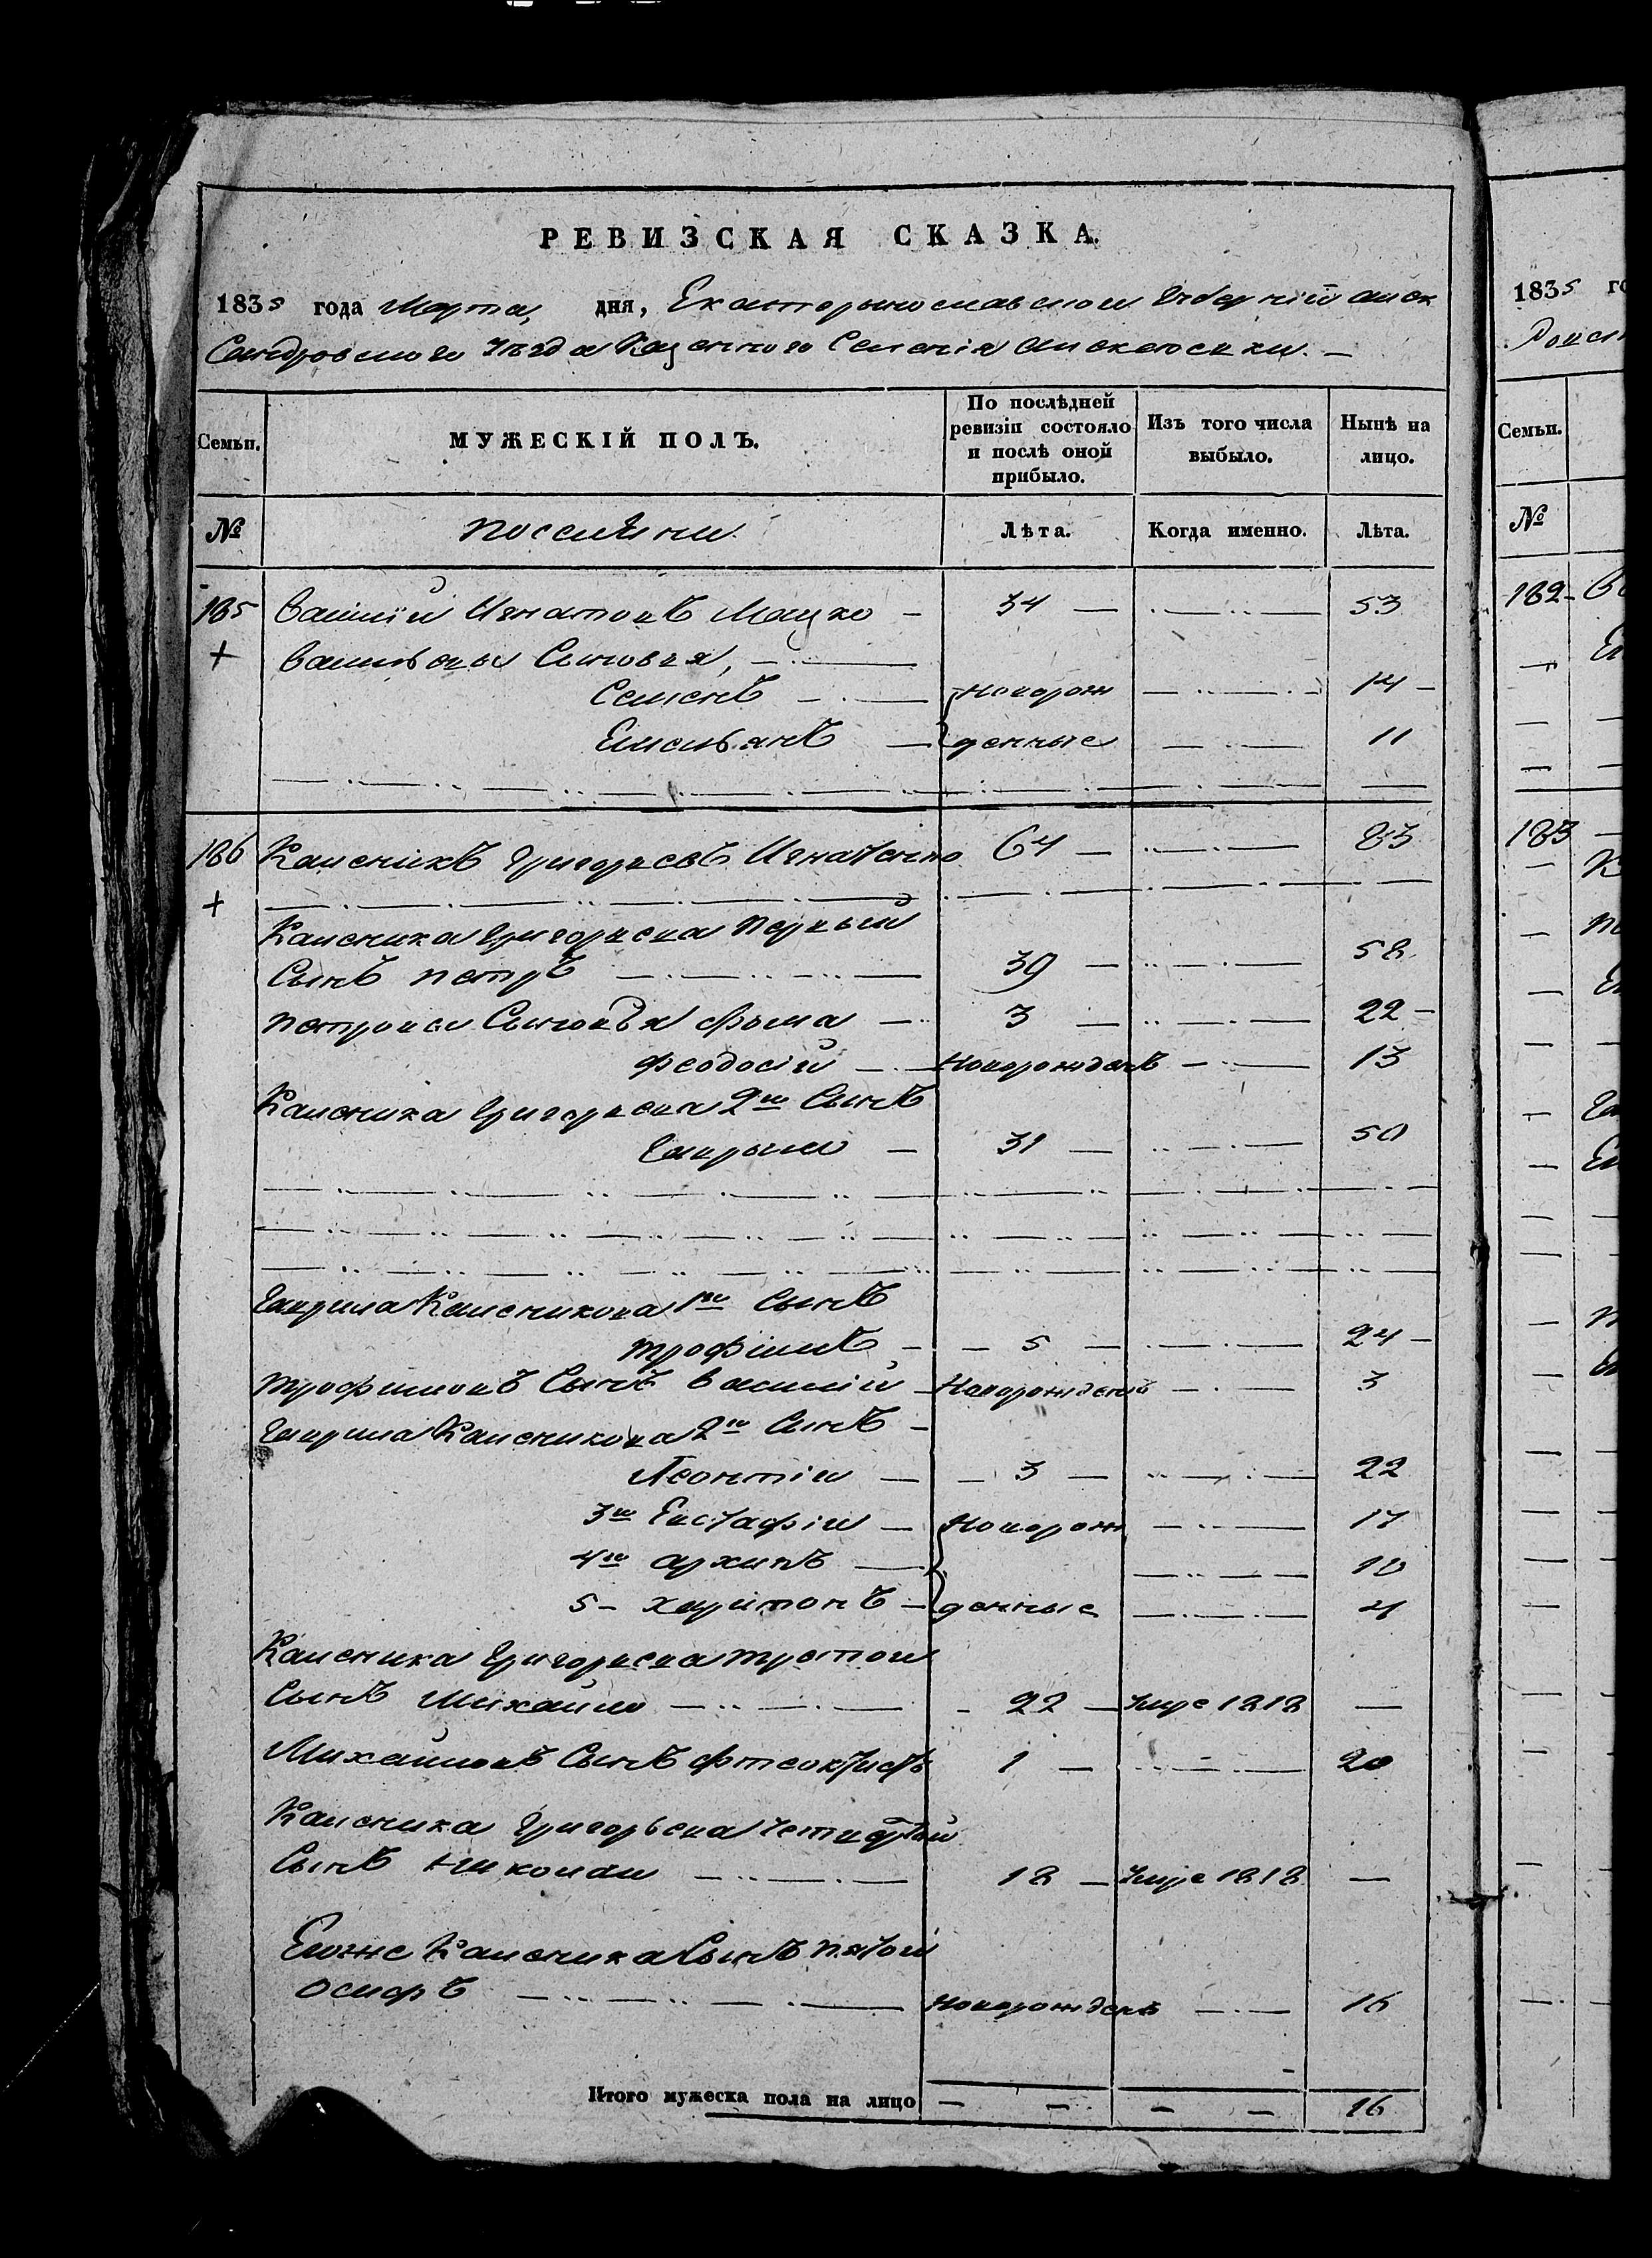 РЕВИЗСКАЯ СКАЗКА.
1835 года Марта, дня, Екатеринославской Губерній Алек
сандровского Уезда Казенного Селенія Алексеевки. —
Семьи. МУЖЕСКІЙ ПОЛЪ. По послѣдней ревизіи состояло и послѣ оной прибыло. Изъ того числа выбыло. Нынѣ на лицо.
№ Поселяни. Лѣта. Когда именно. Лѣта.
185 Василій Игнатовъ Мацко — 34 — 53
+ Васильевы Сыновья, —
Семенъ — новорож — 14 —
Емельянъ — денные — 11
186 Каленикъ Григорьевъ Игнатенко 64 — 83
+
Каленика Григорьева Первый
Сынъ Петръ — 39 — 58
Петровы Сыновья Фома — 3 — 22 —
Феодосій — Новорожденъ — 13
Каленика Григорьева 2й Сынъ
Гаврыил — 31 — 50
Гаврила Каленикова 1й Сынъ
Трофимъ — 5 — 24 —
Трофимовъ Сынъ Василій — Новорожденій — 3
Гаврила Каленикова 2й Сынъ —
Леонтій — 3 — 22
3й Евстафій — Новорож — 17
4й Архипъ — 10
5 — Харитонъ — денные — 4
Каленика Григорьева третой
Сынъ Михайло — 22 — Умре 1818 —
Михайловъ Сынъ Фтеоктистъ 1 — 20
Каленика Григорьева Четвертой
Сынъ Николай — 18 — Умре 1818 —
Егоже Каленика Сынъ пятой
Осифъ — Новорожденъ — 16
Итого мужеска пола на лицо — — — — 16
1835 го
Семьи.
№
182
183